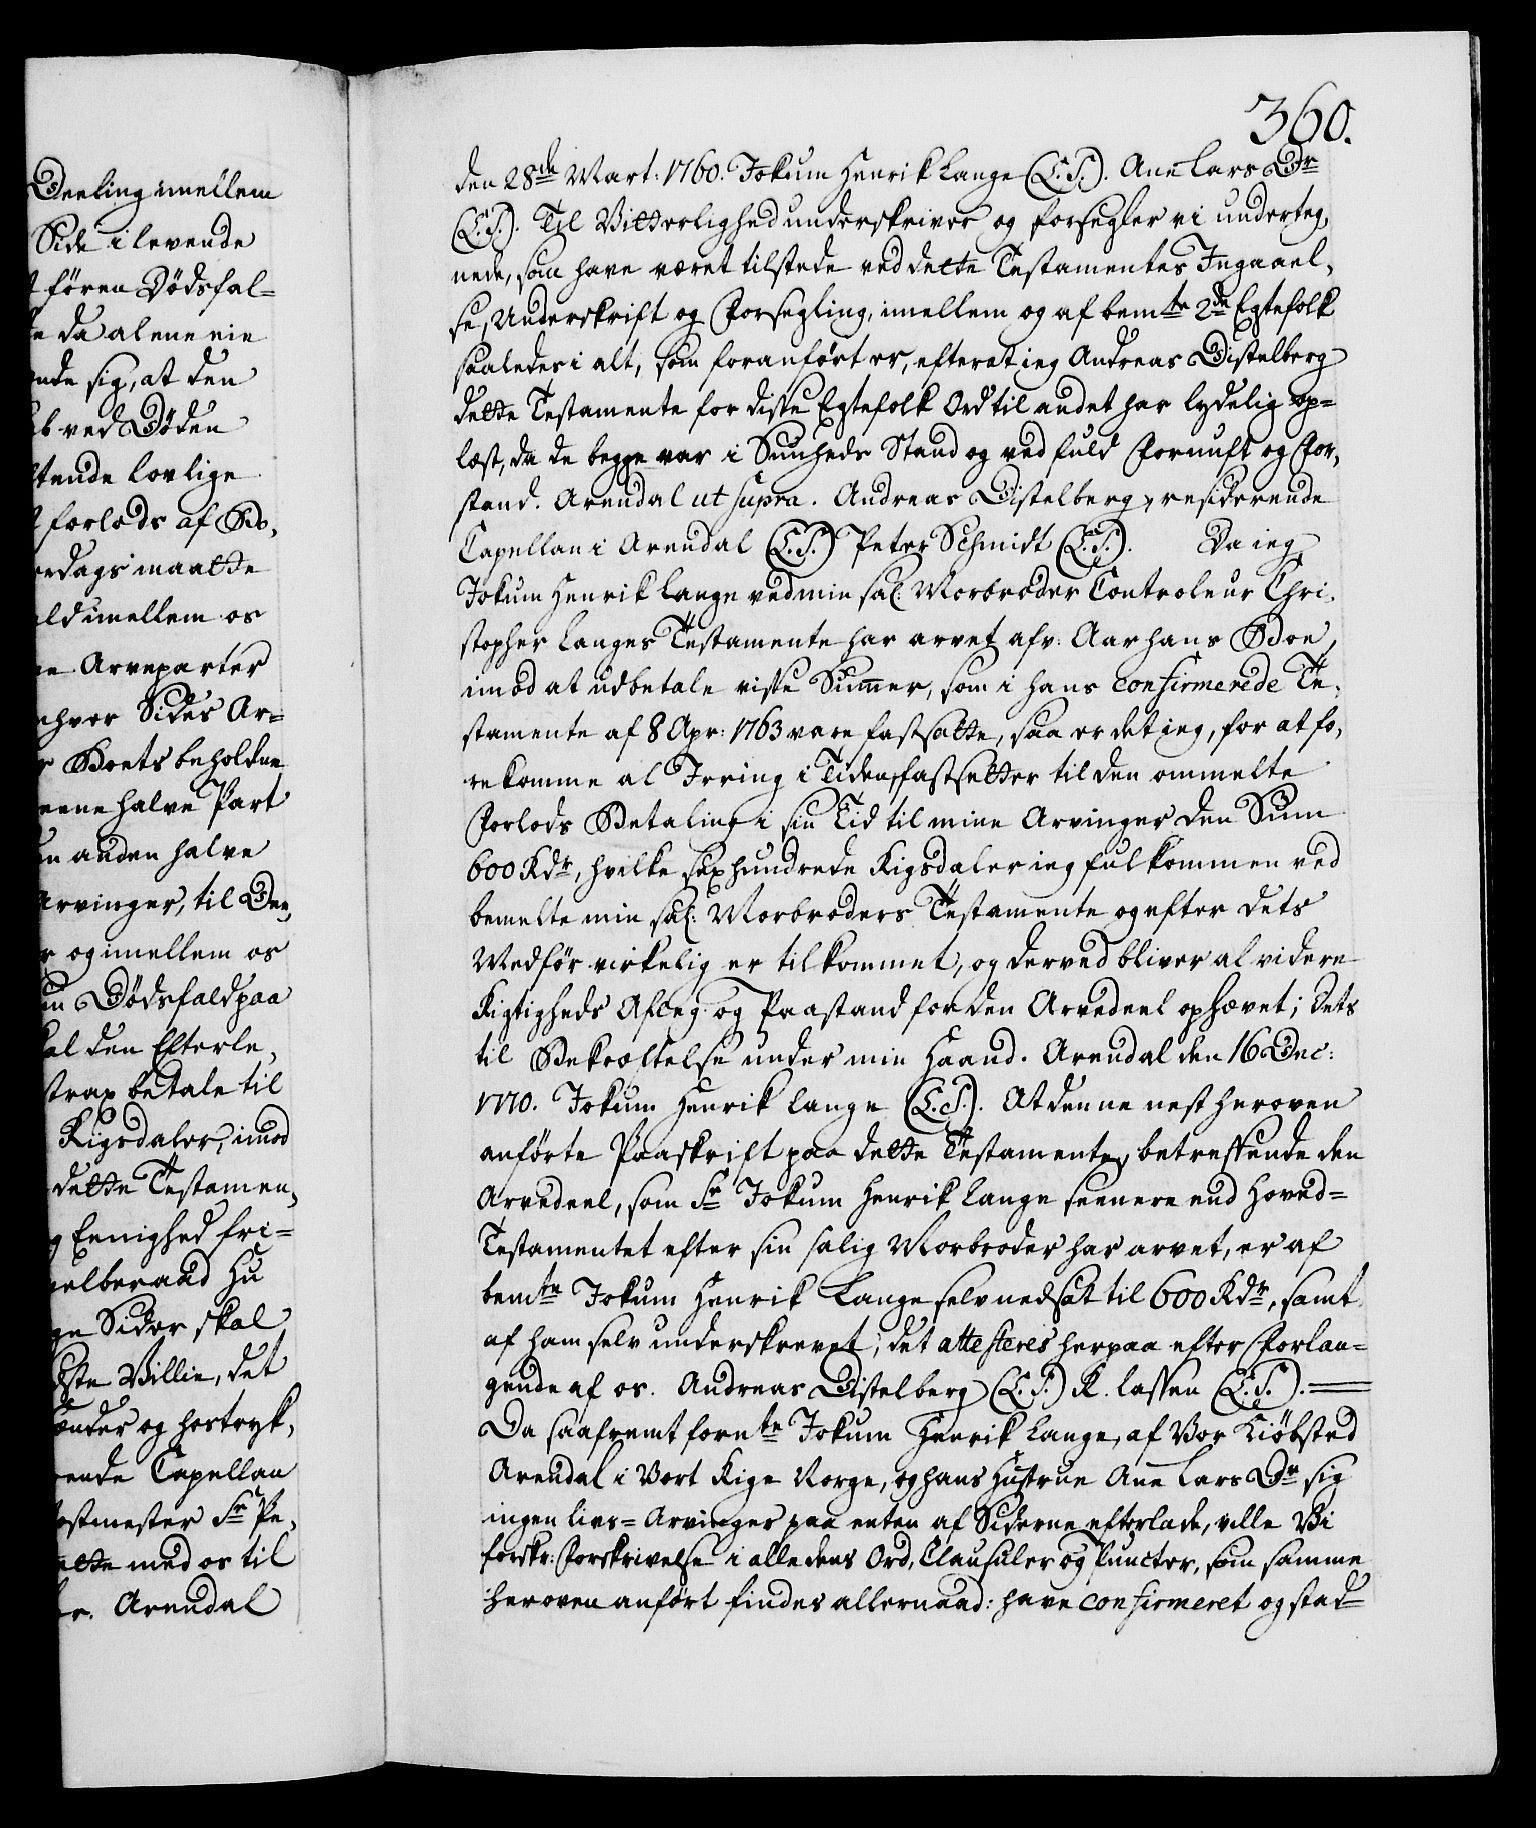 Deeling imellem
Side i levende
fören Dödsfal=
da alene eie
sig, at den
ved Döden
lovlige
forlods af Bo,
dags maatte
imellem os
Arveparter
hver Sides Ar=
Boets beholdne
eene halve Part
anden halve
Arvinger, til Dee,
og imellem os
Dödsfald paa
den Efterle,
strax betale til
Rigsdaler, imod
dette Testamen,
Eenighed fri=
velberaad Hu
Sider skal
Villie, det
og hostryk,
Capellan
Sr Pe,
med os til
Arendal
360.
den 28de Mart: 1760. Jokum Henrik Lange (L.S.). Ane Lars Dr
(L.S.). Til Vitterlighed underskriver og forsegler vi underteg,
nede, som have været tilstede ved dette Testamentes Jngaael,
se, Underskrift og Forsegling, imellem og af bemte 2de Egtefolk
saaledes i alt, som foranfört er, efterat ieg Andreas Distelberg
dette Testamente for disse Egtefolk Ord til andet har lydelig op=
læst, da de begge var i Sunheds Stand og ved fuld Fornuft og For,
stand. Arendal ut supra. Andreas Distelberg, residerende
Capellan i Arendal (L.S.) Peter Schmidt (L.S.). Da ieg
Jokum Henrik Lange ved min sal: Morbroder Controleur Chri,
stopher Langes Testamente har arvet afv: Aar hans Boe,
imod at udbetale visse Summer, som i hans confirmerede Te,
stamente af 8 Apr: 1763 vare fastsatte, saa er det ieg, for at fo,
rekomme al Jrring i Tiden, fastsetter til den ommelte
Forlods Betaling i sin Tid til mine Arvinger den Sum
600 Rdr, hvilke sexhundrede Rigsdaler ieg fulkommen ved
bemelte min sal: Morbroders Testamente og efter dets
Medför virkelig er tilkommet, og derved bliver al videre
Rigtigheds Aflæg og Paastand for den Arvedeel ophævet; dets
til Bekræftelse under min Haand. Arendal den 16 Dec:
1770. Jokum Henrik Lange (L.S.). At denne nest heroven
anförte Paaskrift paa dette Testamente, betreffende den
Arvedeel, som Sr Jokum Henrik Lange seenere end Hoved=
Testamentet efter sin salig Morbroder har arvet, er af
bemte Jokum Henrik Lange selv nedsat til 600 Rdr, samt
af ham selv underskrevet; det attesteres herpaa efter Forlan=
gende af os. Andreas Distelberg (L.S.) K. Lassen (L.S.).
Da saafremt fornte Jokum Henrik Lange, af Vor Kiöbsted
Arendal i Vort Rige Norge, og hans Hustrue Ane Lars Dr sig
ingen Livs=Arvinger paa enten af Siderne efterlade, ville Vi
forskr: Forskrivelse i alle dens Ord, Clausuler og Puncter, som samme
heroven anfört findes allernaad: have confirmeret og stad=